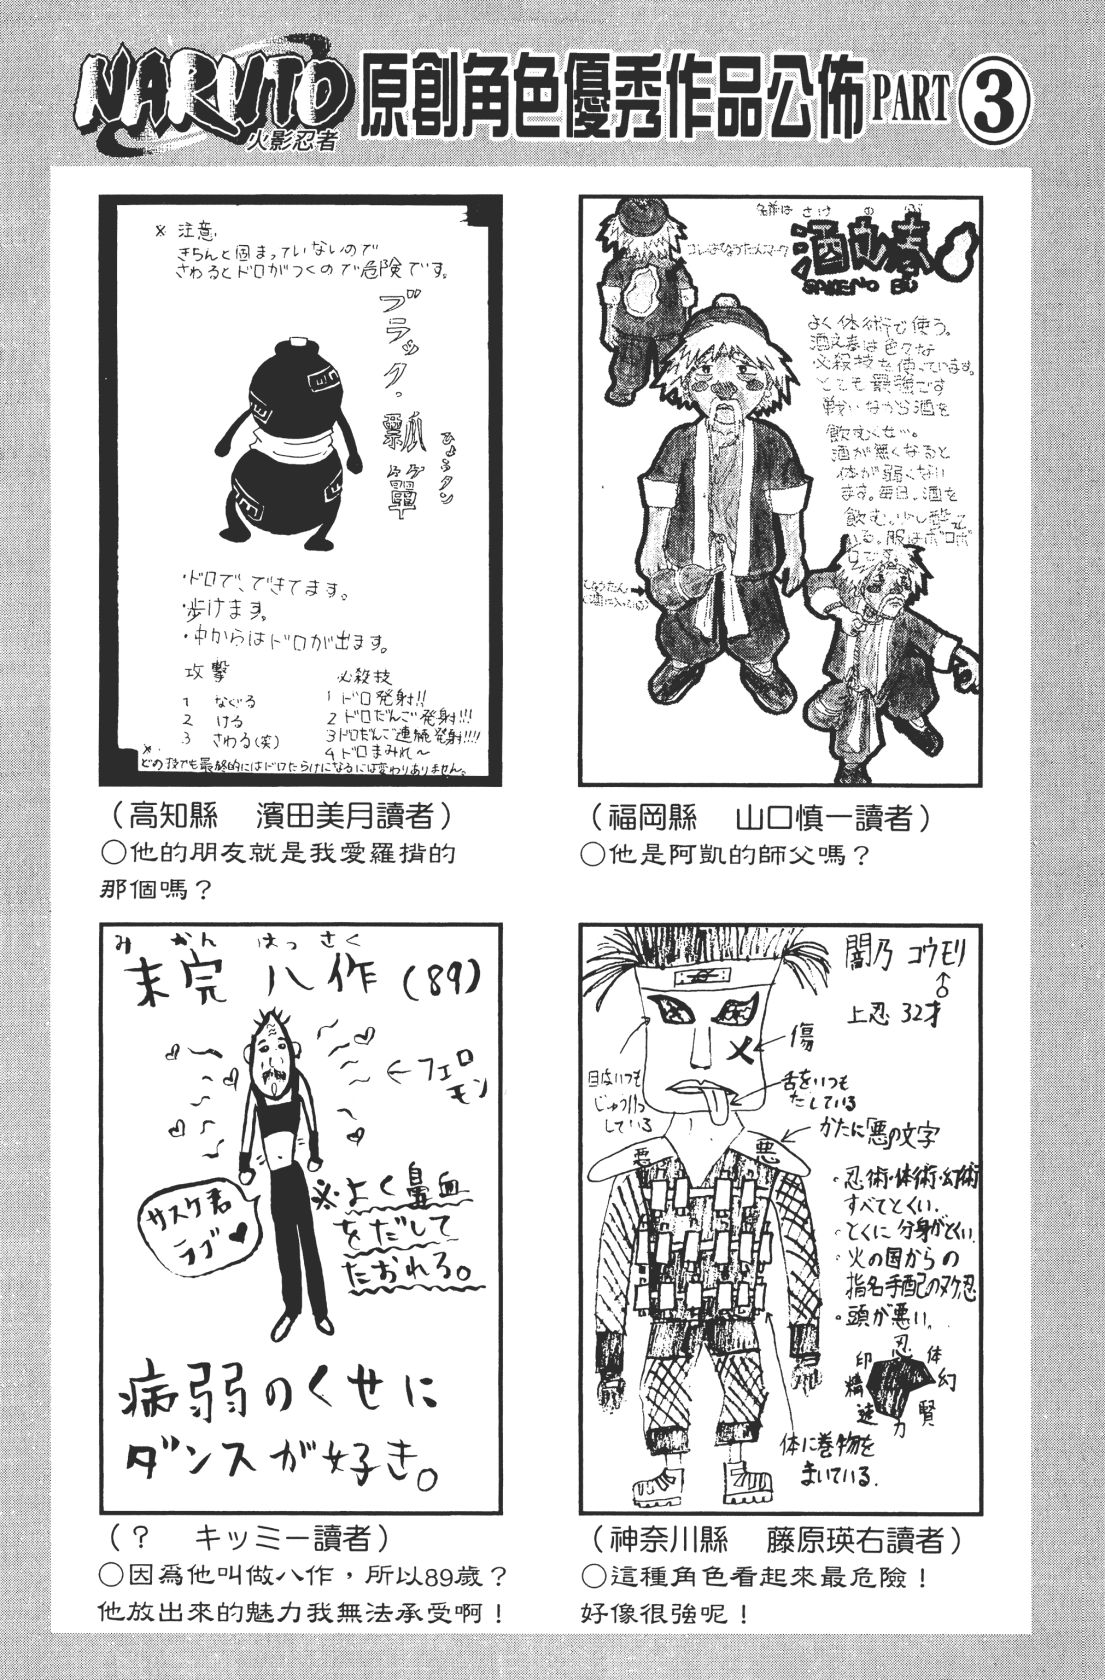 NARUTO
火影忍者
原創角色優秀作品公佈PART③
※ 注意
きちんと固まっていないので
さわるとドロがつくので危険です。
ブラック・瓢箪
ひょうタン
・ドロで、できてます。
・歩けます。
・中からはドロが出ます。
攻撃
1 なぐる
2 ける
3 さわる(笑)
必殺技
1 ドロ発射!!
2 ドロだんご発射!!!
3 ドロだんご連続発射!!!!
4 ドロまみれ〜
※どの技でも最終的にはドロだらけになるには変わりありません。
(高知縣 濱田美月讀者)
○他的朋友就是我愛羅揹的
那個嗎？
名前は さけ の ぶ
コレはひょうたんマーク
酒乃
SAKENO BU
よく体術で使う。
は色々な
必殺技を使っています。
とても最強です
戦いながら酒を
飲むくせ…。
酒が無くなると
体が弱くない
ます。毎日、酒を
飲むいし酔って
いる。服はボロボ
ロです。
ひょうたん
(酒に入っている)
(福岡縣 山口慎一讀者)
○他是阿凱的師父嗎？
み かん はっ さく
未完 八作 (89)
←フェロモン
サスケ君
ラブ♥
※よく鼻血
をだして
たおれる。
病弱のくせに
ダンスが好き。
(？ キッミー讀者)
○因爲他叫做八作，所以89歲？
他放出來的魅力我無法承受啊！
闇乃 コウモリ
↑♂
上忍 32才
傷
目はいつも
じゅう血
している
舌をいつも
だしている
かたに「悪」の文字
悪
悪
・忍術・体術・幻術
すべてとくい。
・とくに分身がとくい
・火の国からの
指名手配のヌケ忍
・頭が悪い。
忍
体
幻
賢
力
速
精
印
体に巻物を
まいている。
(神奈川縣 藤原瑛右讀者)
○這種角色看起來最危險！
好像很強呢！